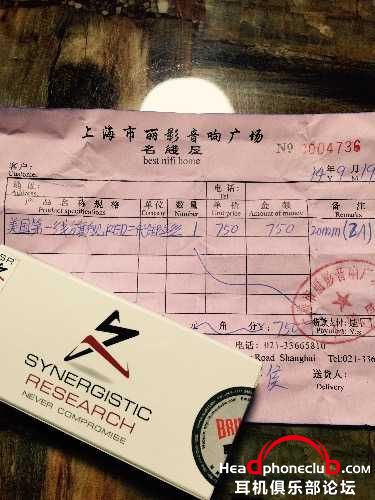 上海市丽影音响广场
名线屋
best hifi home
№ 0004736
客户:
Customer:
14年9月19
地址:
Address:
电话:
Tel
产品名称规格 单位 数量 单价 金额 备注
Product specifications Company Number Unit price Amount of money Remarks
美国第一线旗舰RED 1 750 750 20mm(2A)
角 分¥: 750
电话: 021-33665810
Road Shanghai Tel:021-33
送货人:
Delivery
SR
SYNERGISTIC
RESEARCH
NEVER COMPROMISE
Headphoneclub.com
耳机俱乐部论坛